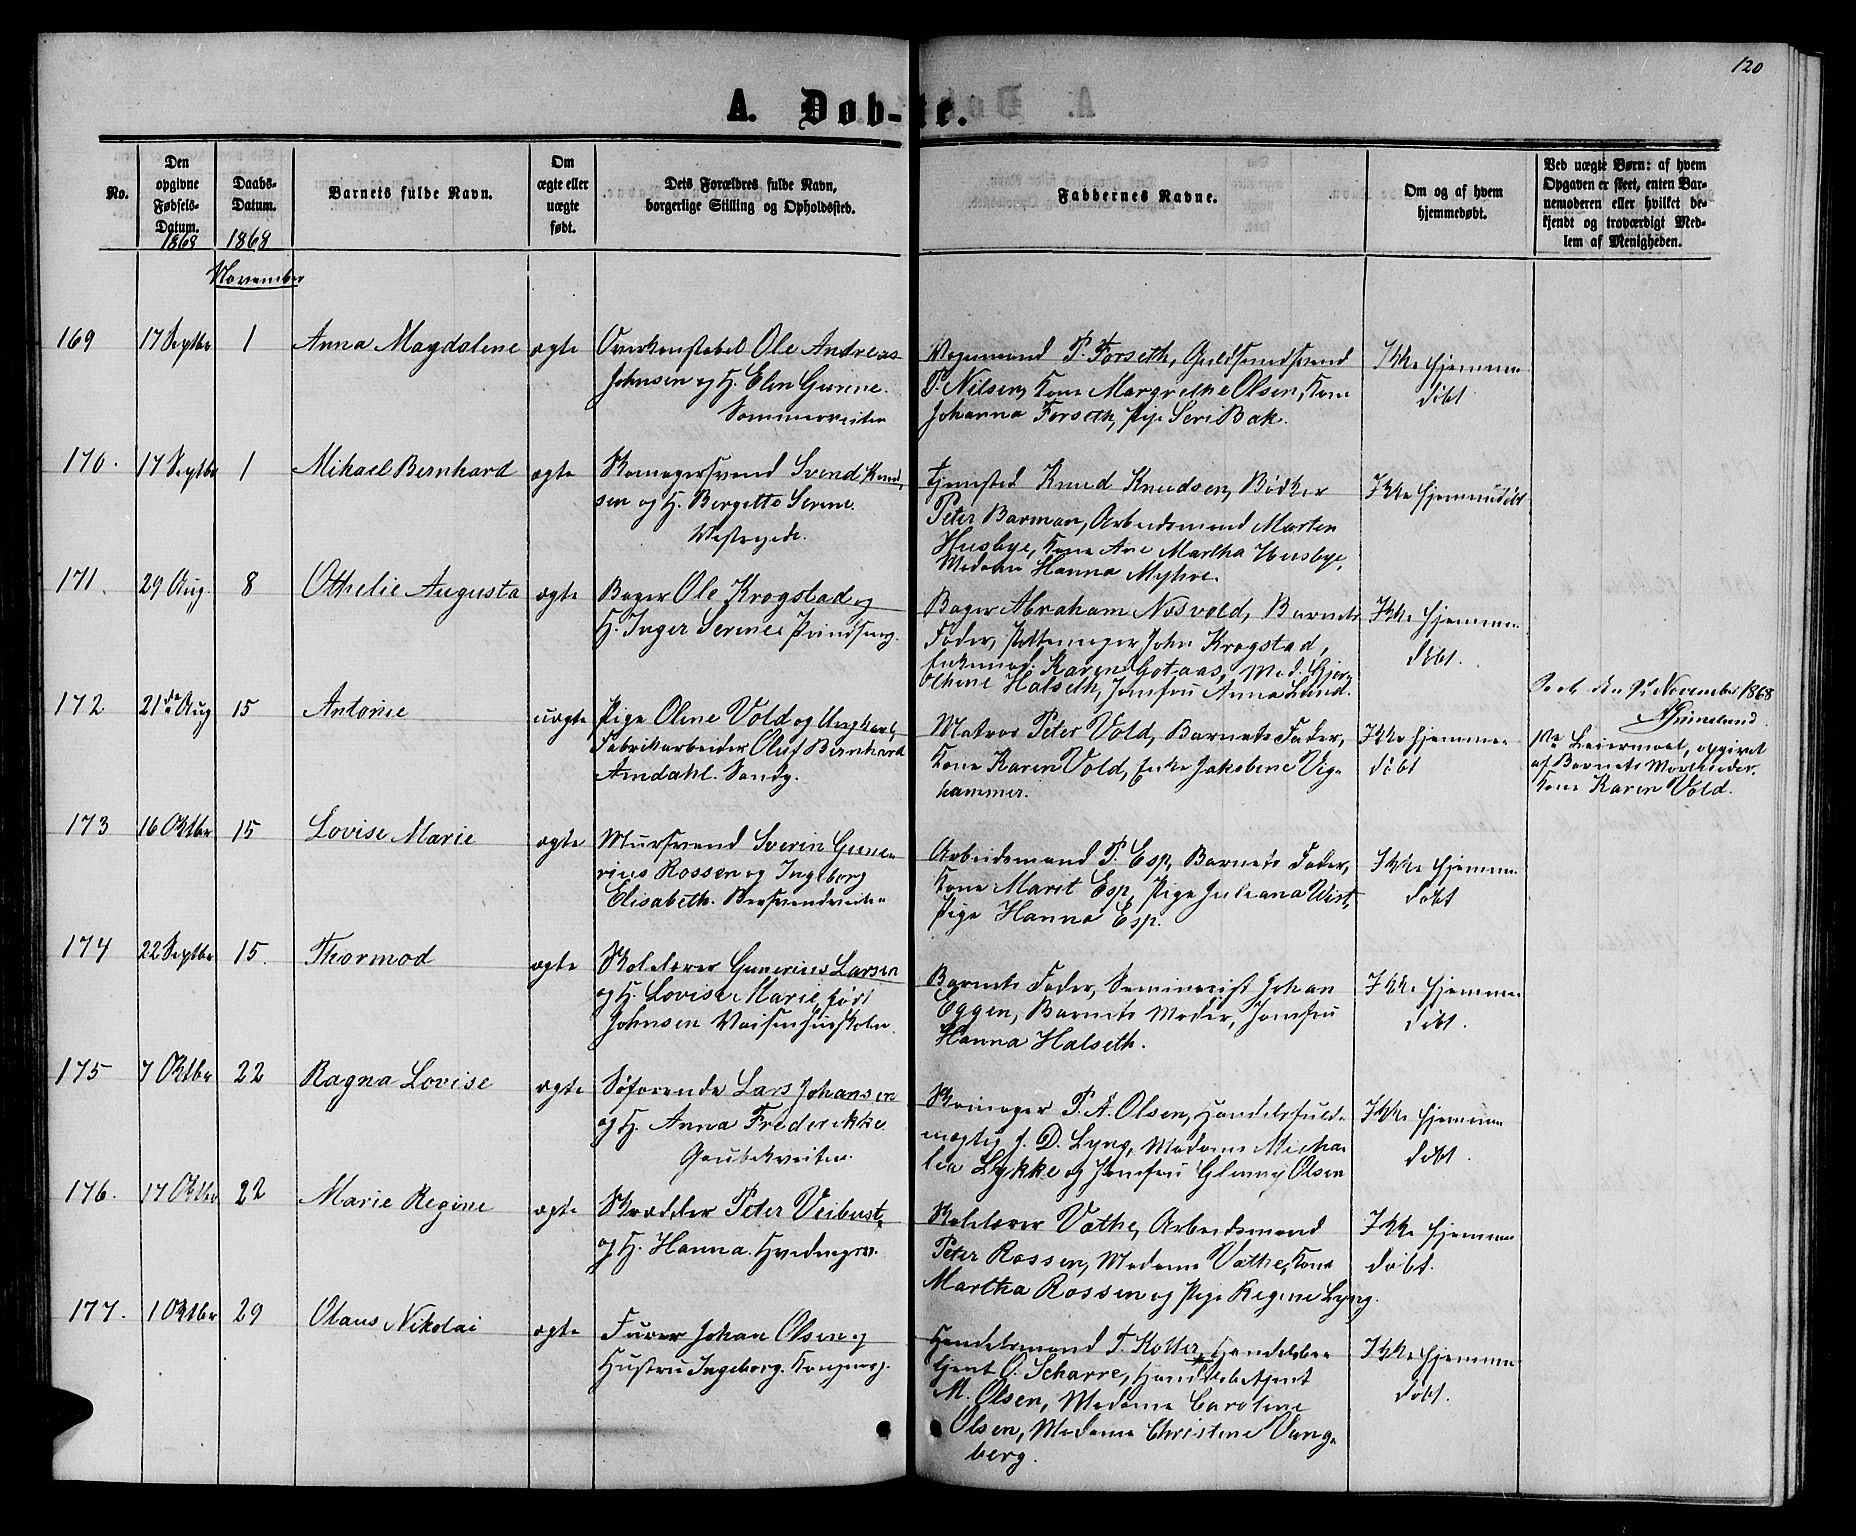 120
A. Døb-te.
No.
Den
opgivne
Fødsels-
Datum.
1868
Daabs-
Datum.
1868
Barnets fulde Navn.
Om
ægte eller
uægte
født.
Dets Forældres fulde Navn,
borgerlige Stilling og Opholdssted.
Faddernes Navne.
Om og af hvem
hjemmedøbt.
Ved uægte Børn: af hvem
Opgaven er skeet, enten Bar-
nemoderen eller hvilket be-
kjendt og troværdigt Med-
lem af Menigheden.
November
169 17 Septbr 1 Anna Magdalene ægte
Overkonstabel Ole Andreas
Johnsen og H. Elen Gurine.
Sommerveiten
Vognmand P. Forseth, Guldsmedsvend
P. Nilsen, Kone Margrethe Olsen, Kone
Johanna Forseth, Pige Seri Bak.
Ikke hjemme
døbt.
170. 17 Septbr 1 Mikael Bernhard ægte
Skomagersvend Svend Knud-
sen og H. Bergitte Serine.
Knud Knudsen, Bødker
Peter Barman, Arbeidsmand Marten
Husbye, Kone Ane Martha Husbye,
Madame Hanna Myhre.
Ikke hjemmedøbt
171. 29 Aug. 8 Othelie Augusta ægte
Bager Ole Krogstad og
H. Inger Serine, Prindsensg.
Bager Abraham Nosvold, Barnets
Fader, Pottemager John Krogstad,
Karen Gotaas, Mad. Gjer-
thine Halseth, Jomfru Anna Lund.
Ikke hjemme
døbt.
172 21de Aug 15 Antonie uægte
Pige Oline Vold og Ungkarl,
Fabrikarbeider Oluf Bernhard
Amdahl. Sandg.
Matros Peter Vold, Barnets Fader,
Kone Karen Vold, Enke Jakobine Vig-
hammer.
Ikke hjemme-
døbt
November 1868
Grimelund.
1ste Leiermaal, opgivet
af Barnets Mormoder,
Kone Karen Vold.
173 16 Oktbr 15 Lovise Marie ægte
Mursvend Sverin Gune-
rius Rossen og Ingeborg
Elisabeth. Bersvendveiten
Arbeidsmand P. Esp, Barnets Fader,
Kone Marit Esp, Pige Juliana Wist,
Pige Hanna Esp.
Ikke hjemme-
døbt
174 22 Septbr 15. Thormod ægte
Skolelærer Gunerius Larsen
og H. Lovise Marie, født
Johnsen Vaisenhusskolen.
Barnets Fader, Seminarist Johan
Eggen, Barnets Moder, Jomfru
Hanna Halseth.
Ikke hjemme-
døbt.
175 7 Oktbr 22 Ragna Lovise ægte
Søfarende Lars Johansen
og H. Anna Frederikke.
Gaubekveiten.
Skomager P. A. Olsen, Handelsfuld-
mægtig J. D. Lyng, Madame Micha-
lea Lykke og Jomfru Glenny Olsen
Ikke hjemme
døbt.
176. 17 Oktbr 22 Marie Regine ægte
Skrædder Peter Veibust
og H. Hanna. Hvedingsv.
Skolelærer Væthe, Arbeidsmand
Peter Rossen, Madame Væthe, Kone
Martha Rossen og Pige Regine Lyng.
Ikke hjemme
døbt.
177. 1 Oktbr 29 Olaus Nikolai ægte
Furer Johan Olsen og
Hustru Ingeborg. Kongensg.
Handelsmand T. Kotter, Handelsbe-
tjent O. Scharre, Handelsbetjent
M. Olsen, Madame Caroline
Olsen, Madame Christine Vang-
berg.
Ikke hjemme
døbt.